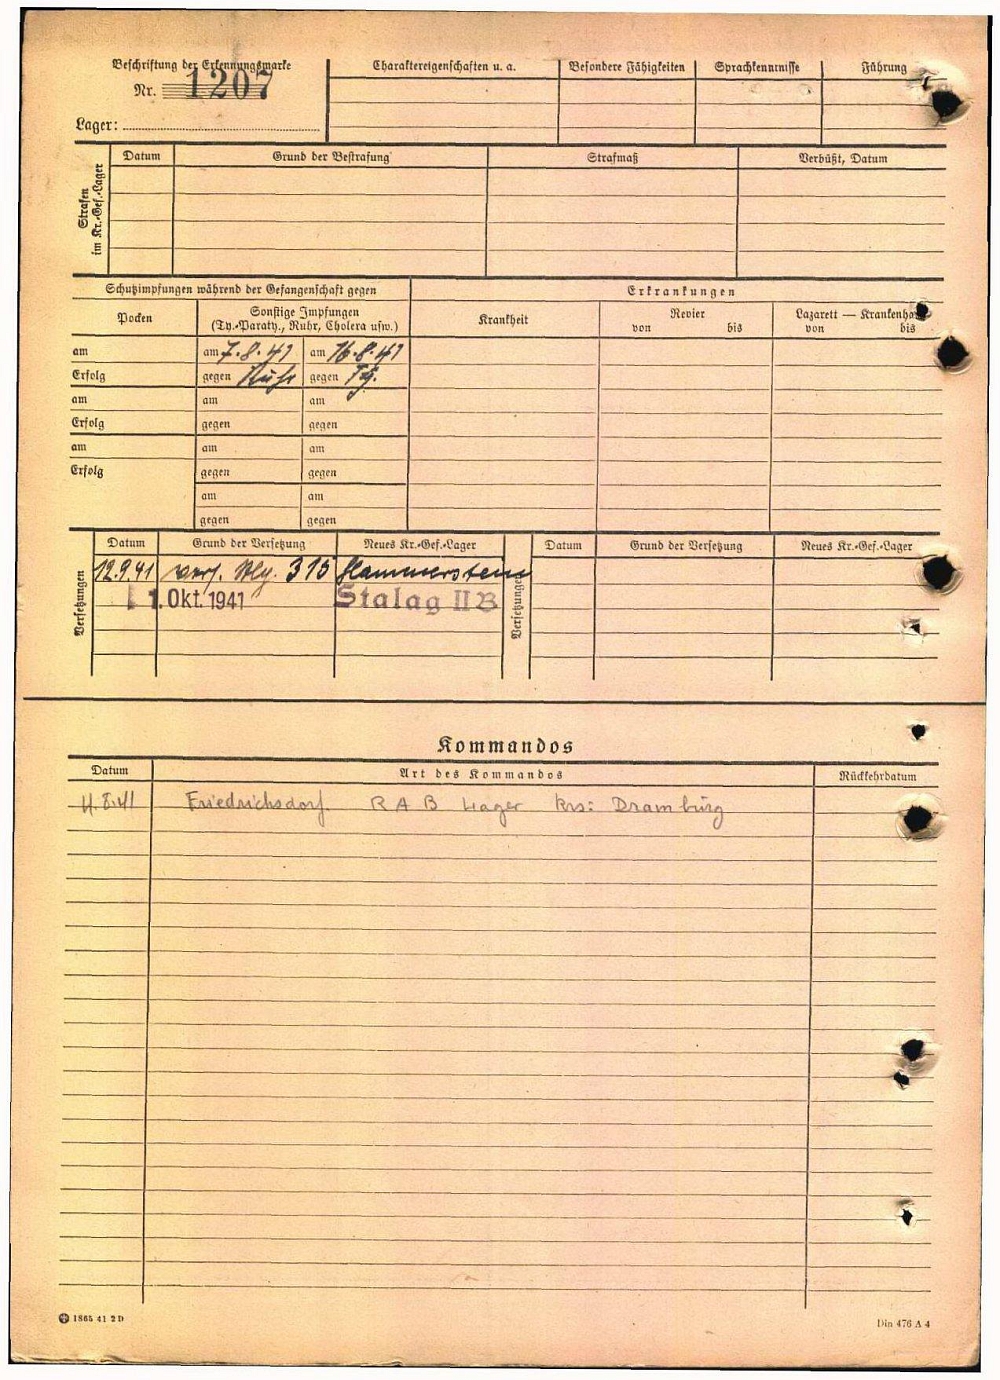 Beschriftung der Erkennungsmarke
Nr. 1207
Lager:
Charaktereigenschaften u. a.
Besondere Fähigkeiten
Sprachkenntnisse
Führung
Strafen
im Kr.-Gef.-Lager
Datum
Grund der Bestrafung
Strafmaß
Verbüßt, Datum
Schutzimpfungen während der Gefangenschaft gegen
Erkrankungen
Pocken
Sonstige Impfungen
(Ty.-Paraty., Ruhr, Cholera usw.)
Krankheit
Revier
von bis
Lazarett — Krankenha
von bis
am am 7.8.41 am 16.8.41
Erfolg gegen Ruhr gegen Ty.
am am am
Erfolg gegen gegen
am am am
Erfolg gegen gegen
am am
gegen gegen
Versetzungen
Datum Grund der Versetzung Neues Kr.-Gef.-Lager
12.9.41 315 Hammerstein
1. Okt. 1941 Stalag II B
Versetzungen
Datum Grund der Versetzung Neues Kr.-Gef.-Lager
Kommandos
Datum Art des Kommandos Rückkehrdatum
4.8.41 Friedrichsdorf. R A B Lager Krs: Dramburg
1865 41 2 D
Din 476 A 4